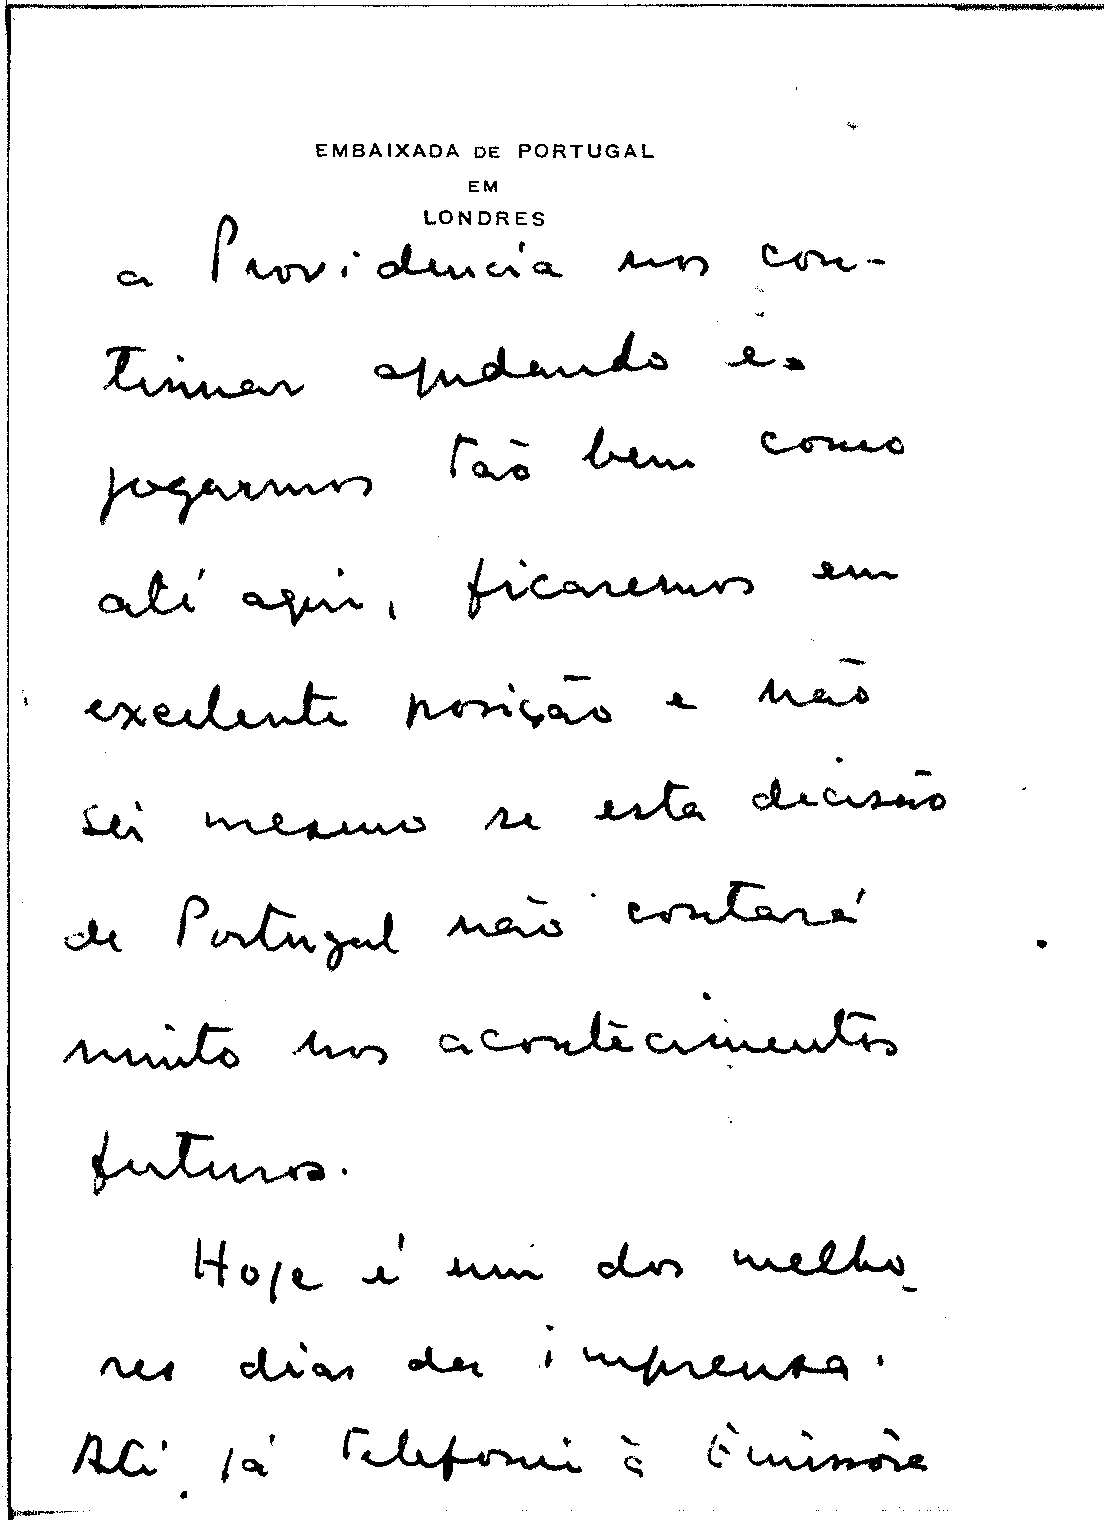 EMBAIXADA DE PORTUGAL
EM
LONDRES
a Providencia nos con-
tinuar ajudando e
jogarmos tão bem como
até aqui, ficaremos em
excelente posição e não
sei mesmo se esta decisão
de Portugal não contará
muito nos acontecimentos
futuros.
Hoje é um dos melho-
res dias da imprensa.
Até já telefonei à Emissora